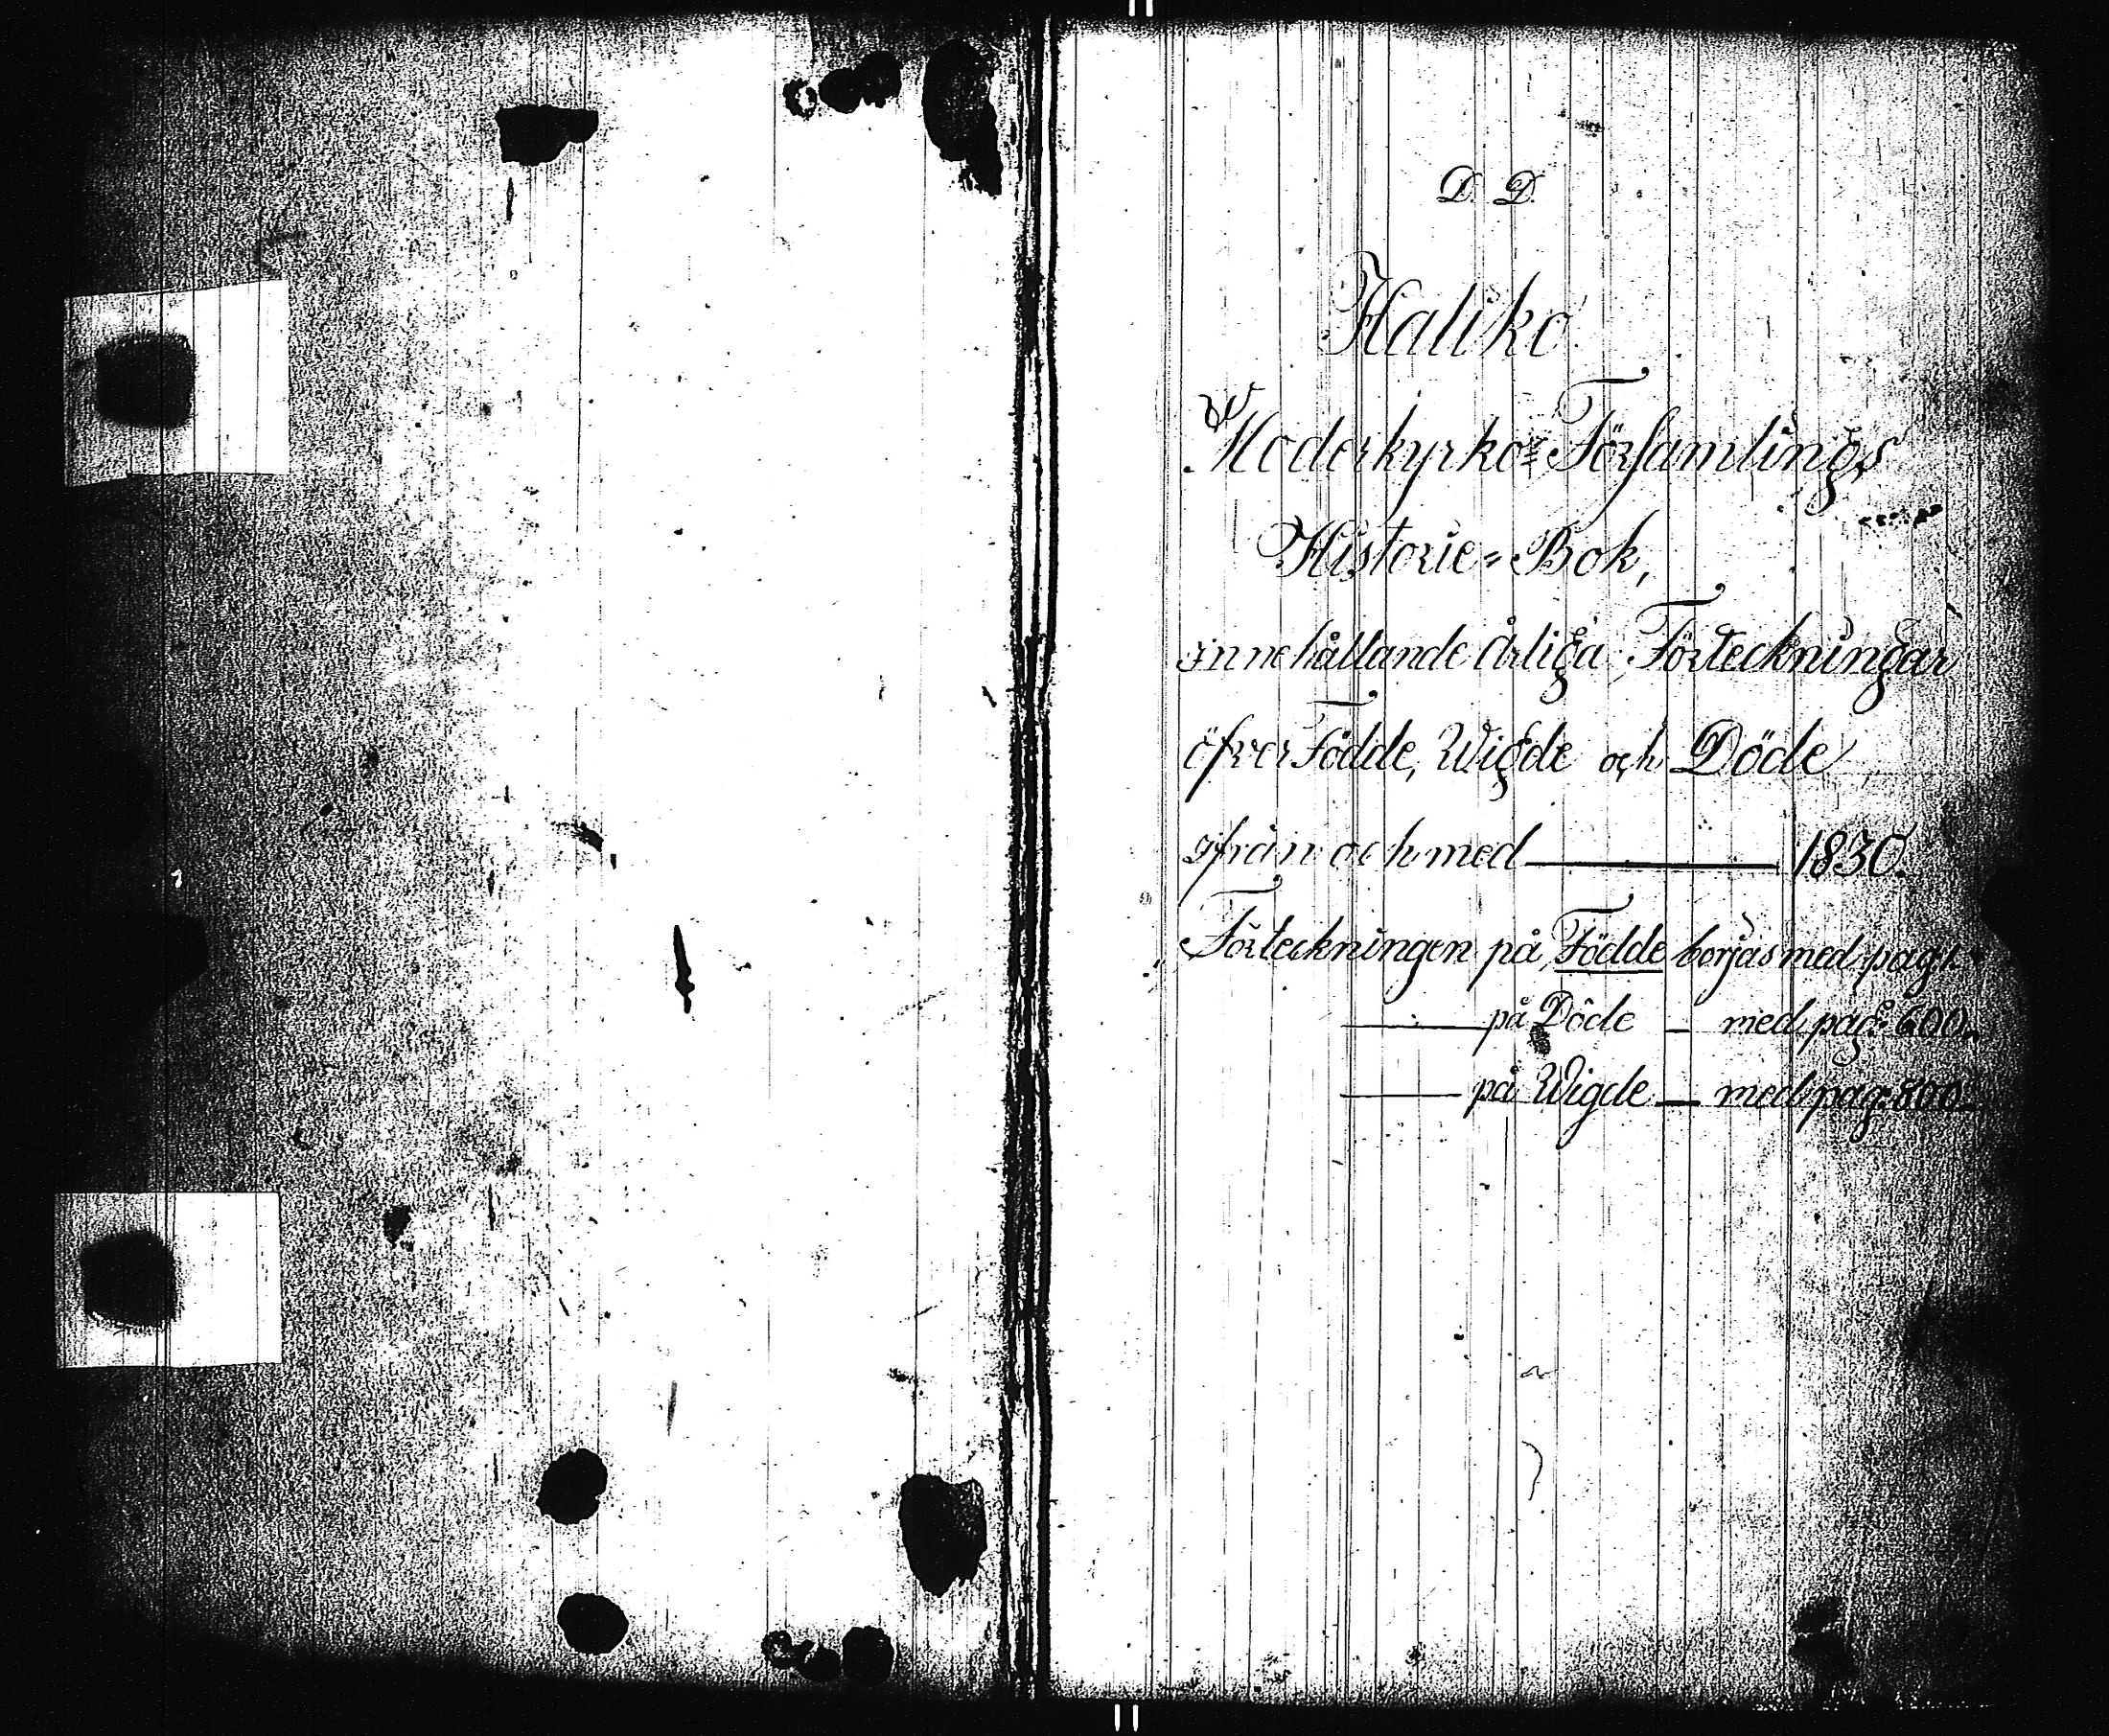 D. D.
Haliko
Moderkyrko= Församlings
Historie=Bok,
innehållande årliga Förteckningar
öfver Födde, Wigde och Döde
ifrån och med — 1830.
Förteckningen på Födde börjas med pag: 1.
— på Döde — med pag: 600.
— på Wigde — med pag: 800.